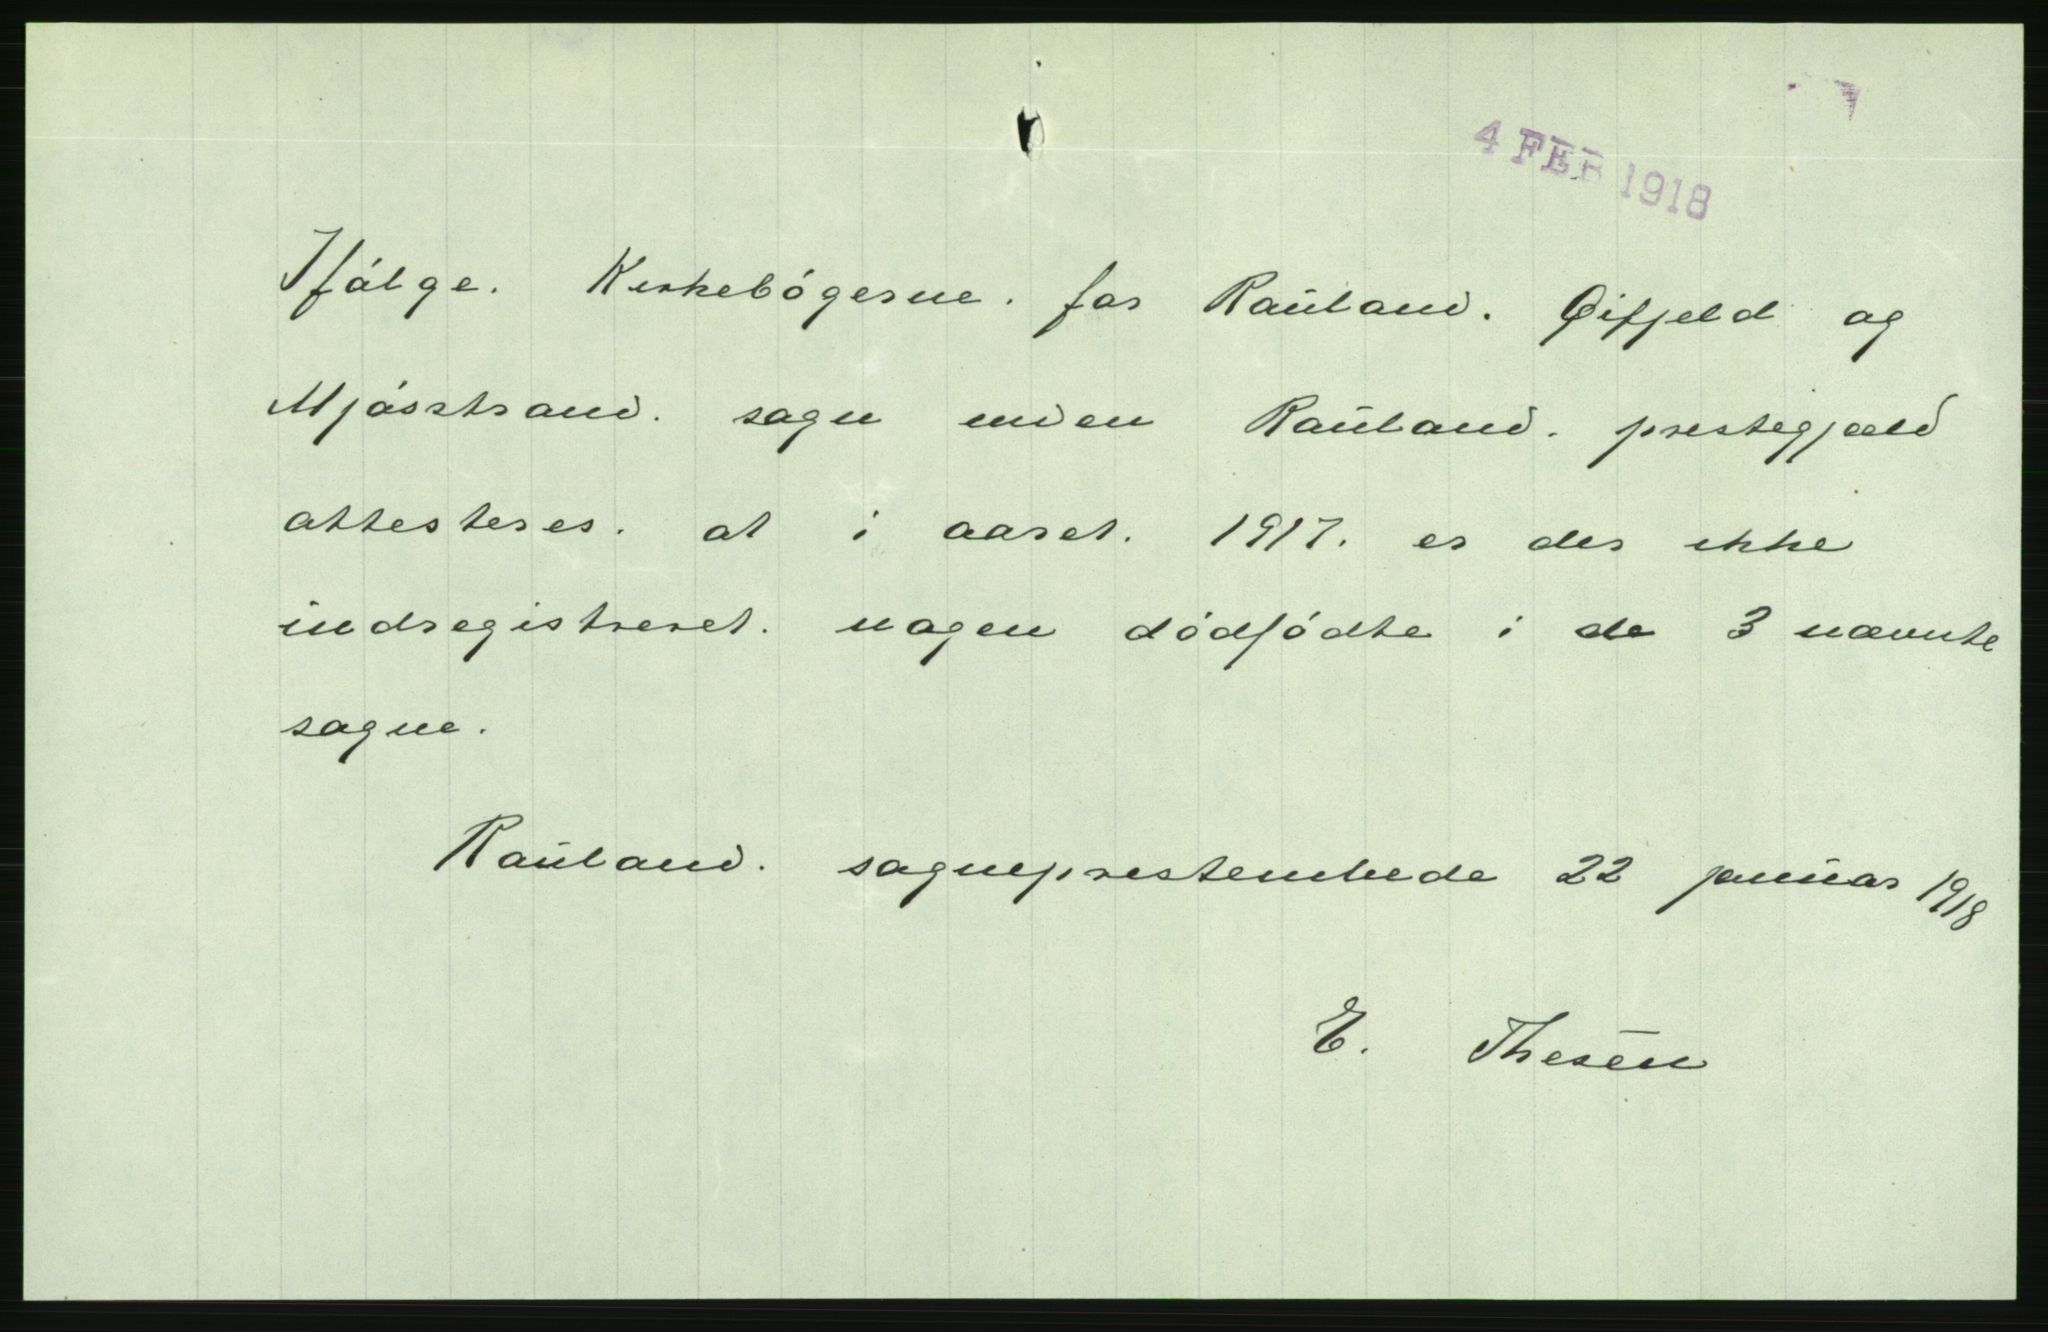 4 FEB 1918
Ifølge. Kirkebøgerne. for Rauland. Øifjeld og
Mjøsstrand. sogn inden Rauland. prestegjæld
attesteres. at i aaret. 1917. er der ikke
indregistreret. nogen dødfødte i de 3 nævnte
sogne.
Rauland. sogneprestembede 22 januar 1918
E. Thesen